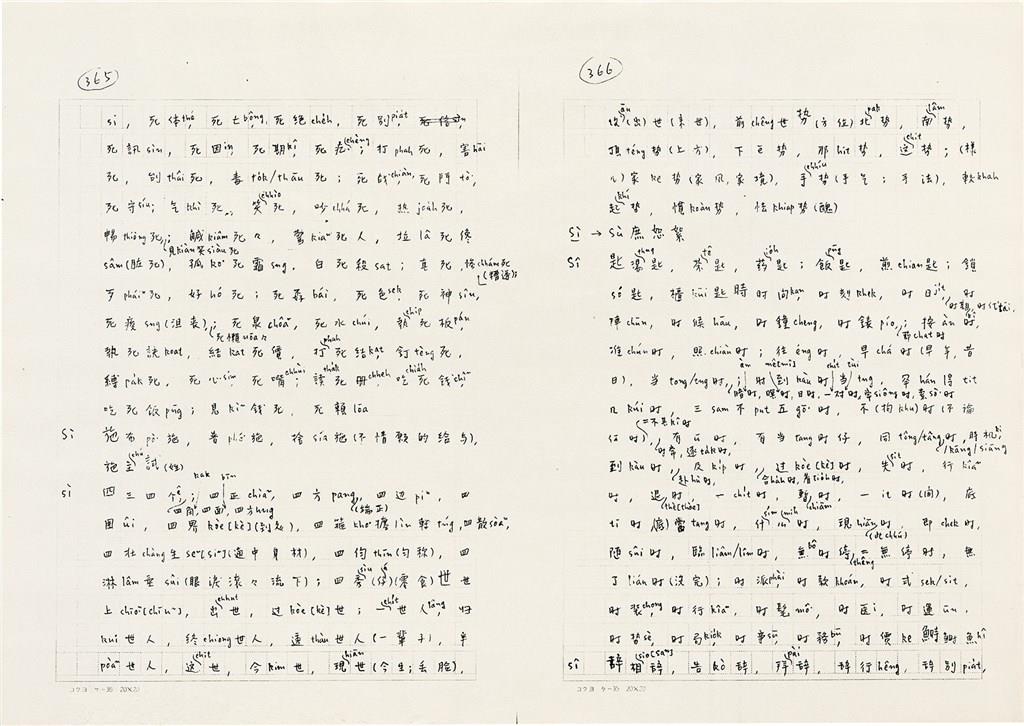 365
sí, 死体thé, 死亡bông, 死绝cheh, 死别piát
死訊sìn, 死因in, 死期kî, 死症chèng; 打phah死, 害hāi
死, 刣thâi死, 毒tok/thāu死; 死战chiàn, 死鬥tò;
死守síu; 气khì死, 笑chhiò死, 吵chhá死, 热joah死,
暢thiòng死; 鹹kiâm死々, 驚kiaⁿ死人, 拉lâ死
見kiàn笑siàu死
sâm(脏死), 孤ko͘死霜sng, 自死殺sat; 真死, 惨chhám死
(糟透);
歹pháiⁿ死, 好hó死; 死寡bái, 死色sek, 死神sîn,
死痠sng(沮喪); 死泉chôaⁿ, 死水chúi, 執chip死板pán
执死訣koat, 結kat死價, 打phah死結kat, 釘tèng死,
縛pák死, 死心sim, 死嘴chhùi; 讀thák死册chheh 吃chiah死钱chîⁿ
吃死饭pn̄g; 見kìⁿ钱死, 死賴lōa
Sì 施布pò͘施, 普phó͘施, 捨sía施(不情願的给与),
施主chú 試(姓)
sì 四三四个ê; 四正chiàⁿ, 四方pang, 四边piⁿ, 四
四角kak, 四面bīn, 四方hng (端正)
囲ûi, 四界kòe[kè](到处), 四箍kho͘攄lìn轉tńg, 四散sòaⁿ,
四壮chàng生seⁿ[siⁿ](適中身材), 四伨thīn(匀称), 四
淋lâm垂sûi(眼淚滚々流下); 四秀siù(零食) 世世
上chiōⁿ[chiūⁿ], 出chhut世, 过kòe[kè]世; 一chit世人lâng, 归
kui世人, 終chiong世人, 透thàu世人(一輩子), 半
pòaⁿ世人, 这chit世, 今kim世, 現hiān世(今生; 丢脸),
コクヨ ケ-35 20×20
366
(出)世(来世), 前chêng世 势(方位)北pak势, 南lâm势,
頂téng势(上方), 下ē势, 那hit势, 这chit势; (樣
儿)家ke势(家风, 家境), 手chhiú势(手气; 手法), 軟khah
起khí势, 慣koàn势, 怯khiap势(醜)
Sì → Sù 庶恕絮
Sî 匙湯thng匙, 茶tê匙, 药ióh匙; 飯pn̄g匙, 煎chian匙; 鎖
só匙, 櫃kūi匙 時时间kan, 时刻khek, 时日jit, 时
时期, 时代tāi,
陣chūn, 时候hāu, 时鐘cheng, 时錶pío; 按àn时,
節chat时
准chún时, 照chiàu时; 往éng时, 早chá时(早年, 昔
日), 当tong/tng时; 时到kàu时当tng, 罕hán得tit
暗时, 暝时, 日时, 一对时, 常siông时, 素sò͘时
几kúi时, 三sam不put五gō͘时, 不(拘khu)时(不論
=不見kìⁿ时
何时), 有ū时, 有当tang时仔, 同tông/tâng时, 時机ki
时常, 逐ták时 /kāng/siāng
到kàu时, 及kip时, 过kòe[kè]时, 失sit时, 行kiâⁿ
赴hù时, 合háh时, 着tióh时
时, 退时, 一chit时, 暫chiām时, 一it时(间), 底
thè[thòe]
tī时(底)當tang时, 什sím/mih时, 現hiān时, 即chek时,
(at chú)
随sûi时, 臨liâm/lîm时, 無bô时停thêng=無停时, 無
了liáu时(没完); 时派phài时款khoán, 时式sek/sit,
时裝chong时行kiâⁿ, 时髦mô͘, 时医i, 时運ūn,
时势sè, 时局kiok, 时事sū, 时務bū, 时價kè 鰣鰣魚hî
Sî 辞相sio[saⁿ]辞, 告kò辞, 拜pài辞, 辞行hêng, 辞别piát,
コクヨ ケ-35 20×20